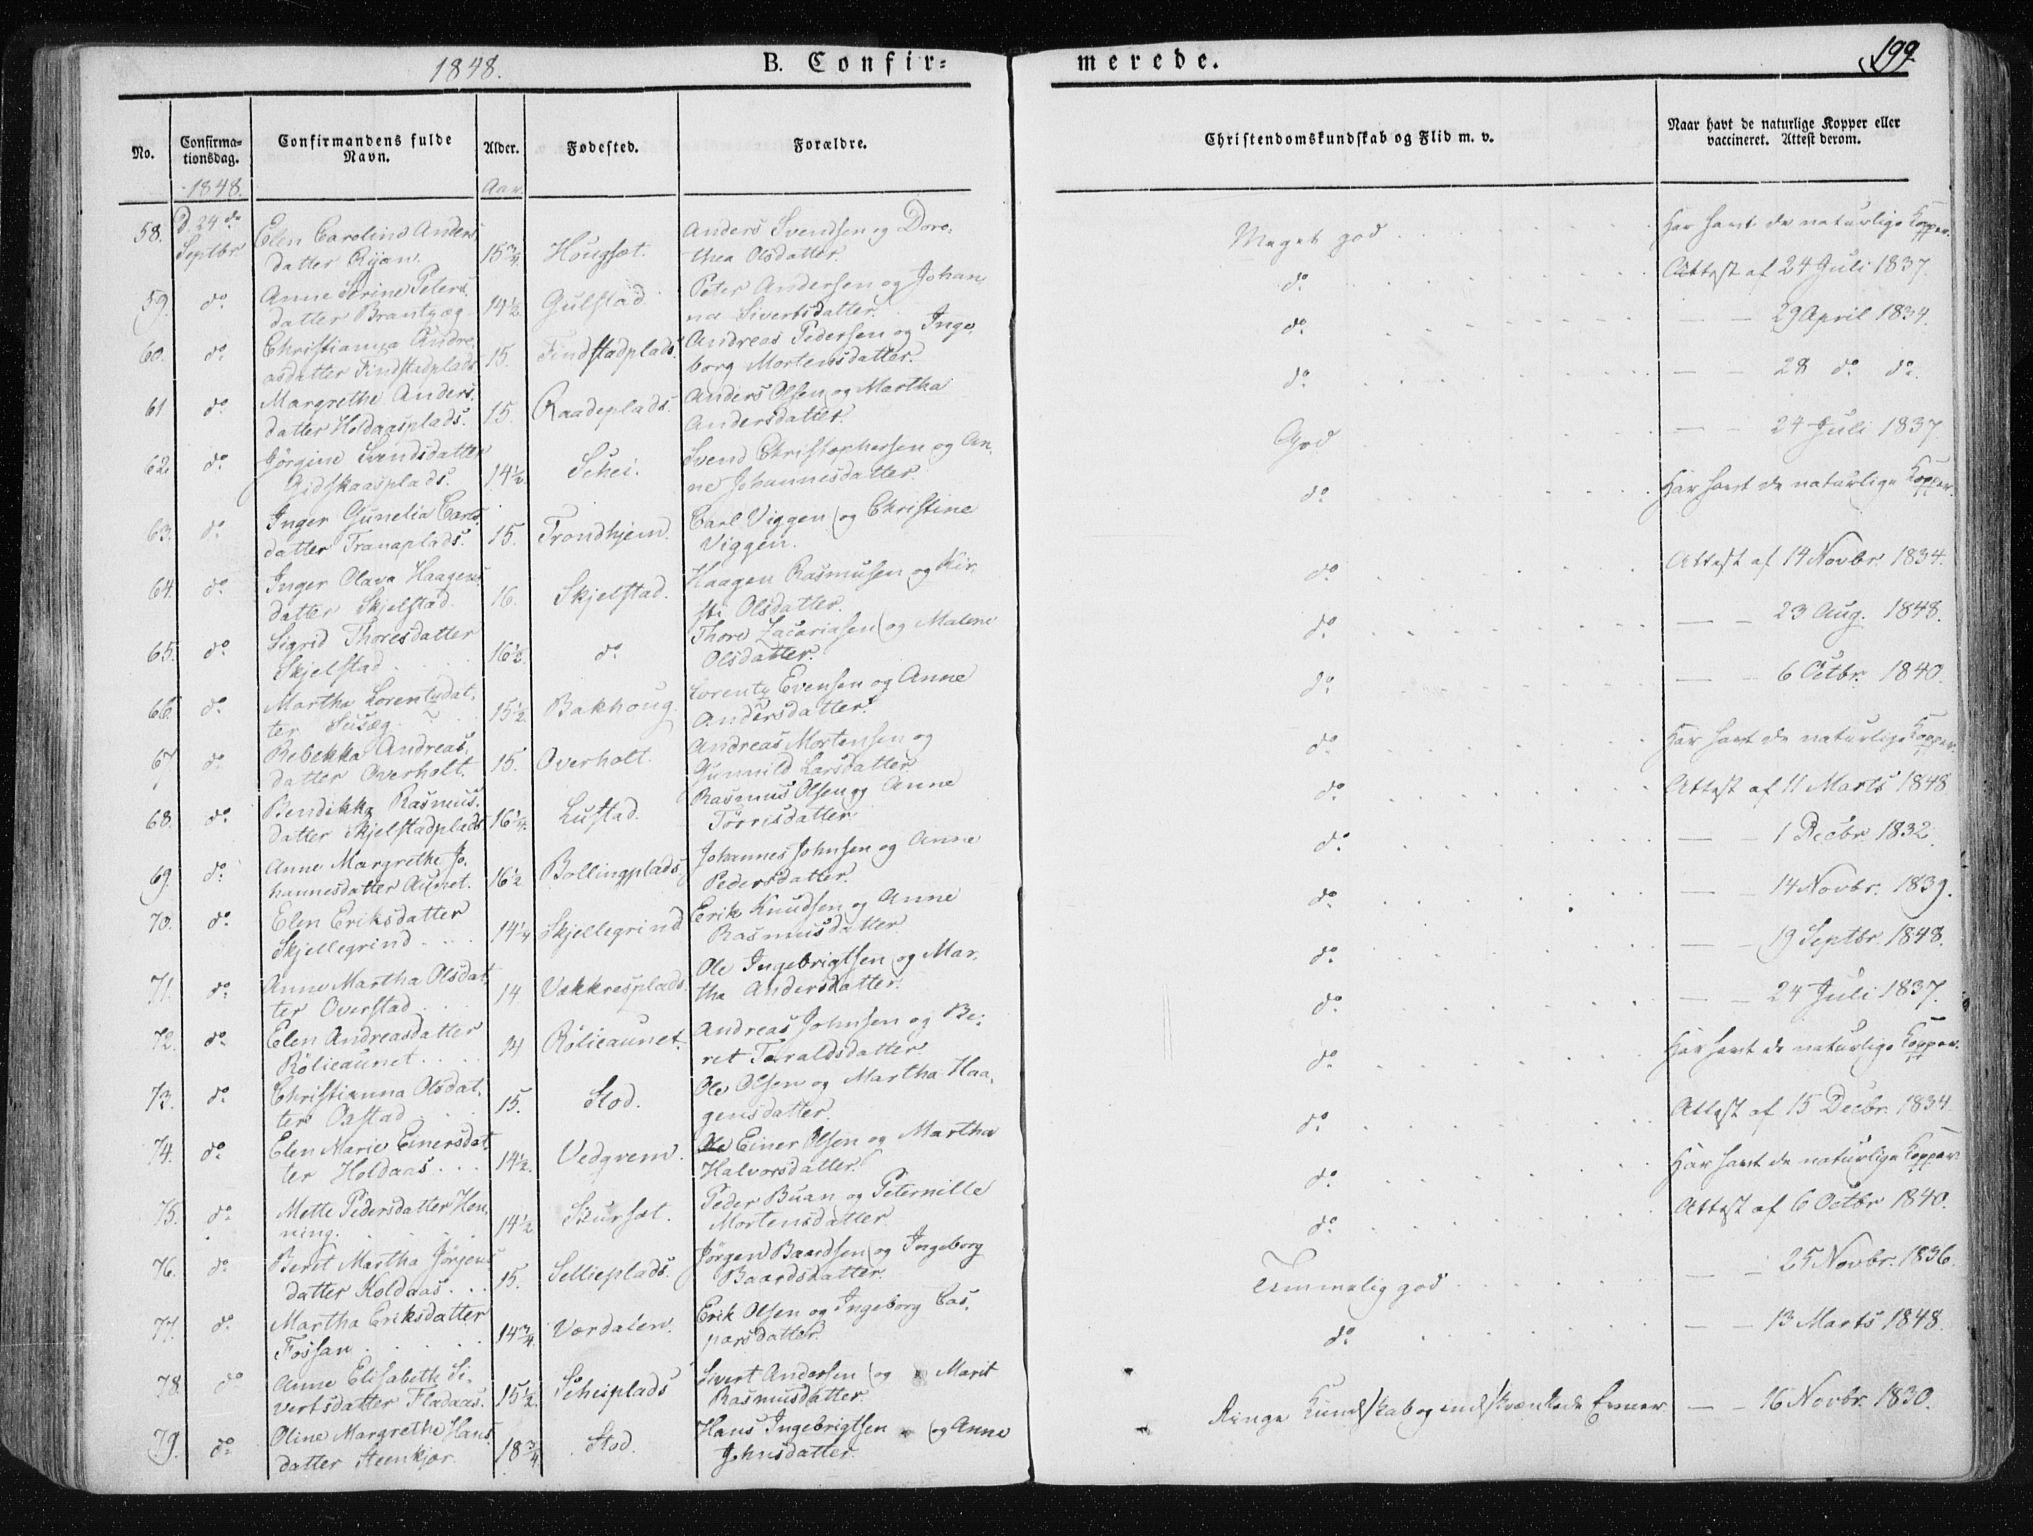 1848.
B. Confir=
merede.
199.
No.
Confirma-
tionsdag.
Confirmandens fulde
Navn.
Alder.
Fødested.
Forældre.
Christendomskundskab og Flid m. v.
Naar havt de naturlige Kopper eller
vaccineret. Attest derom.
1848.
Aar.
58.
D. 24de
Septbr
Elen Caroline Anders
datter Ryan.
15 3/4
Hougset.
Anders Svendsen og Doro-
thea Olsdatter.
Meget god
Har havt de naturlige Kopper.
59.
do
Anne Serine Peters
datter
14 1/2
Gulstad
Peter Andersen og Johan
na Sivertsdatter.
do
Attest af 24 Juli 1837.
60.
do
Christianna Andre
asdatter Findstadplads
15.
Findstadplads.
Andreas Pedersen og Inge
borg Mortensdatter.
do
— — 29 April 1834.
61
do
Margrethe Anders
datter Holdaasplads.
15.
Raadeplads.
Anders Olsen og Martha
Andersdatter.
do
— — 28 do do.
62.
do
Jørgine Svendsdatter
Gidskaasplads.
14 1/2.
Schei.
Svend Christophersen og An
ne Johannesdatter.
God
— — 24 Juli 1837.
63.
do
Inger Gunelia Carls
datter Tranaplads.
15.
Trondhjem.
Carl Viggen og Christine
Viggen.
do
Har havt de naturlige Kopper.
64.
do
Inger Olava Haagens
datter Skjelstad.
16.
Skjelstad.
Haagen Rasmusen og Kir
sti Olsdatter.
do
Attest af 14 Novbr. 1834.
65.
do
Sigrid Thoresdatter
Skjelstad
16 1/2.
do
Thore Zacariasen og Malene
Olsdatter.
do
— — 23 Aug. 1848.
66.
do
Martha Lorentzdat
ter Susæg
15 1/2.
Bakhoug.
Lorentz Evensen og Anne
Andersdatter.
do
— — 6 Octbr. 1840.
67
do
Rebekka Andreas
datter Overholt.
15.
Overholt.
Andreas Mortensen og
Gunnild Larsdatter
do
Har havt de naturlige Kopper.
68.
do
Bendikka Rasmus
datter Skjelstadplads
16 1/4.
Lustad.
Rasmus Olsen og Anne
Tørrisdatter
do
Attest af 11 Marts 1848
69.
do
Anne Margrethe Jo
hannesdatter Aunet.
16 1/2
Bollingplads.
Johannes Johnsen og Anne
Pedersdatter.
do
— — 1 Decbr. 1832.
70.
do
Elen Eriksdatter
Skjellegrind
14 1/4
Skjellegrind
Erik Knudsen og Anne
Rasmusdatter.
do
— — 14 Novbr. 1839.
71.
do
Anne Martha Olsdat
ter Overstad
14
Vakkresplads.
Ole Ingebrigtsen og Mar
tha Andersdatter.
do
— — 19 Septbr. 1848.
72.
do
Elen Andreasdatter
Rølieaunet
14
Rølieaunet.
Andreas Johnsen og Be
ret Taraldsdatter.
do
— — 24 Juli 1837.
73.
do
Christianna Olsdat
ter Oxstad
15.
Stod.
Ole Olsen og Martha Haa
gensdatter.
do
Har havt de naturlige Kopper.
74.
do
Elen Marie Einersdat
ter Holdaas
14 1/2.
Vedgrem.
Einer Olsen og Martha
Halvorsdatter.
do
Attest af 15 Decbr. 1834.
75.
do
Mette Pedersdatter Hen
ning.
14 1/2
Skurset.
Peder Buan og Peternille
Mortensdatter.
do
Har havt de naturlige Kopper
76.
do
Beret Martha Jørgens
datter Koldaas
15.
Sellieplads.
Jørgen Baardsen og Ingeborg
Baardsdatter.
do
Attest af 6 Octbr 1840.
77.
do
Martha Eriksdatter
Fossan
14 3/4
Værdalen.
Erik Olsen og Ingeborg Cas
parsdatter.
Temmelig god
— — 25 Novbr. 1836.
78.
do
Anne Elisabeth Si
vertsdatter Fladaas.
15 1/2.
Scheiplads
Sivert Andersen og Marit
Rasmusdatter.
do
— — 13 Marts 1848.
79.
do
Oline Margrethe Hans
datter Steenkjær.
18 3/4
Stod.
Hans Ingebrigtsen og Anne
Johnsdatter.
Ringe Kundskab og indskrænkede Evner
— — 16 Novbr. 1830.